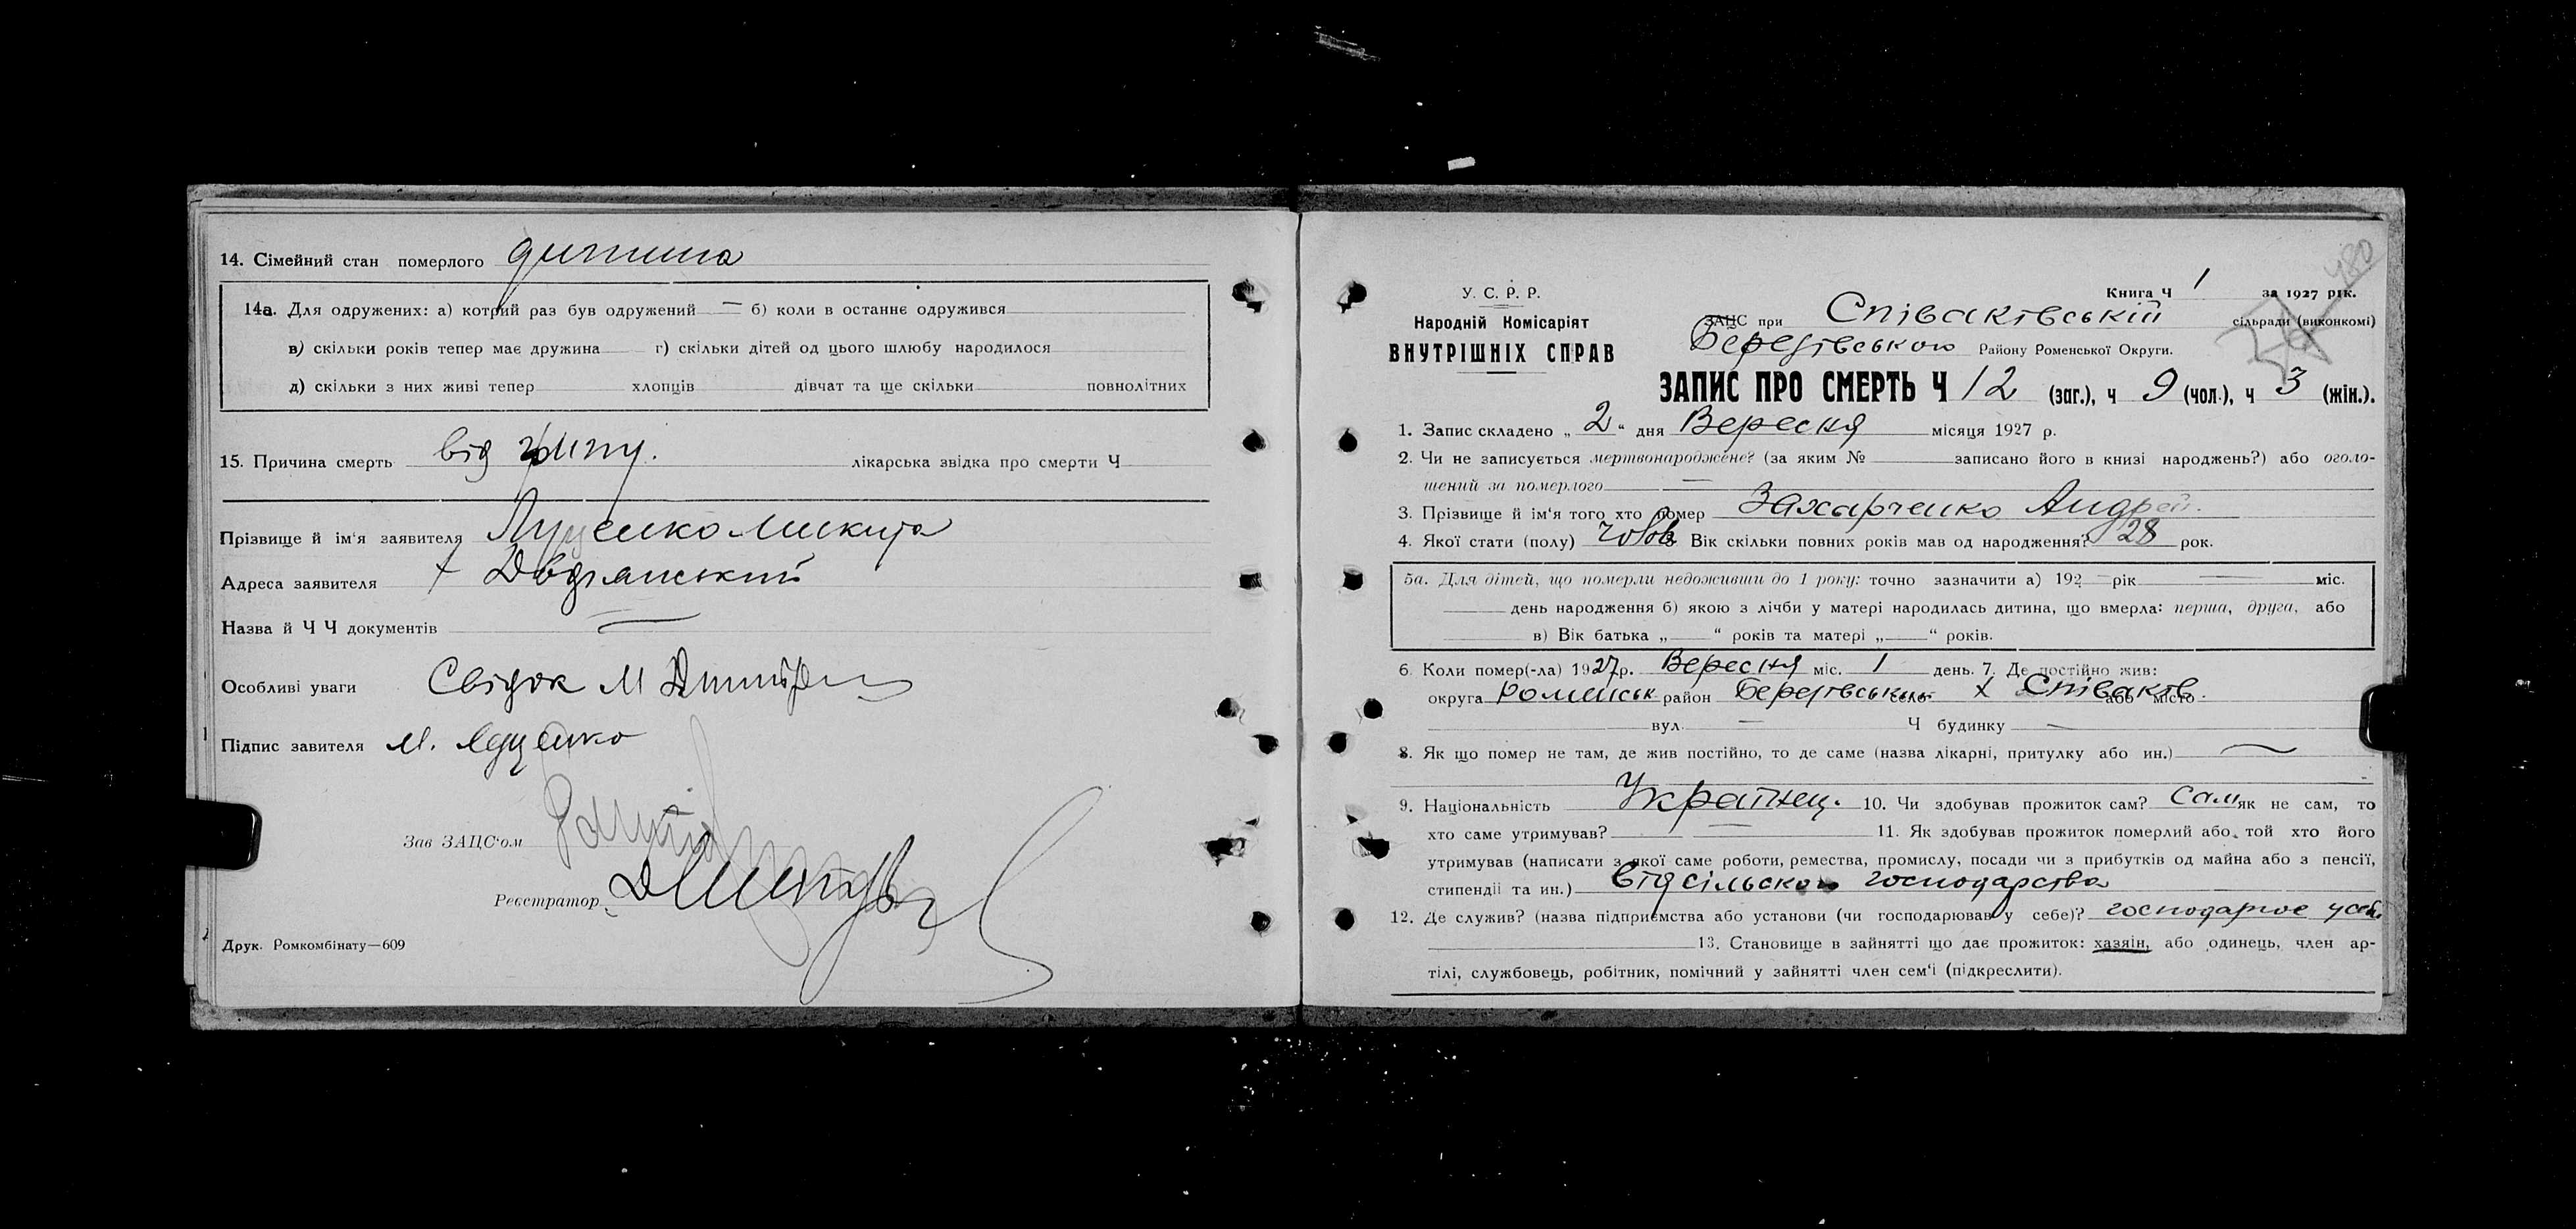 14. Сімейний стан померлого дитина
14а. Для одружених: а) котрий раз був одружений — б) коли в останнє одружився
в) скільки років тепер має дружина г) скільки дітей од цього шлюбу народилося
д) скільки з них живі тепер хлопців дівчат та ще скільки повнолітних
15. Причина смерть від грипу. лікарська звідка про смерти Ч
Прізвище й ім'я заявителя Луценко Микита
Адреса заявителя х
Назва й Ч Ч документів —
Особливі уваги Свідок М
Підпис завителя М. Луценко
Зав ЗАЦС'ом
Реєстратор
Друк. Ромкомбінату—609
480
Книга Ч 1 за 1927 рік.
У. С. Р. Р.
Народній Комісаріят
ВНУТРІШНІХ СПРАВ
ЗАЦС при Співаківській сільради (виконкомі)
Березівського Району Роменської Округи.
ЗАПИС ПРО СМЕРТЬ Ч 12 (заг.), ч 9 (чол.), ч 3 (жін.).
1. Запис складено „ 2 “ дня Вересня місяця 1927 р.
2. Чи не записується мертвонароджене? (за яким № записано його в книзі народжень?) або оголо-
шений за померлого —
3. Прізвище й ім'я того хто помер Захарченко Андрей.
4. Якої стати (полу) чолов Вік скільки повних років мав од народження? 28 рок.
5а. Для дітей, що померли недоживши до 1 року: точно зазначити а) 192 — рік — міс.
день народження б) якою з лічби у матері народилась дитина, що вмерла: перша, друга, або
в) Вік батька „ “ років та матері „ “ років.
6. Коли помер(-ла) 1927р. Вересня міс. 1 день. 7. Де постійно жив:
округа Роменськ район Березівськ село х Співаків або місто
вул. — Ч будинку —
8. Як що помер не там, де жив постійно, то де саме (назва лікарні, притулку або ин.) —
9. Національність Українец. 10. Чи здобував прожиток сам? Сам як не сам, то
хто саме утримував? — 11. Як здобував прожиток померлий або той хто його
утримував (написати з якої саме роботи, ремества, промислу, посади чи з прибутків од майна або з пенсії,
стипендії та ин.) від сільского господарства
12. Де служив? (назва підприємства або установи (чи господарював у себе)? господарює у себе
13. Становище в зайнятті що дає прожиток: хазяін, або одинець, член ар-
тілі, службовець, робітник, помічний у зайнятті член сем'ї (підкреслити).